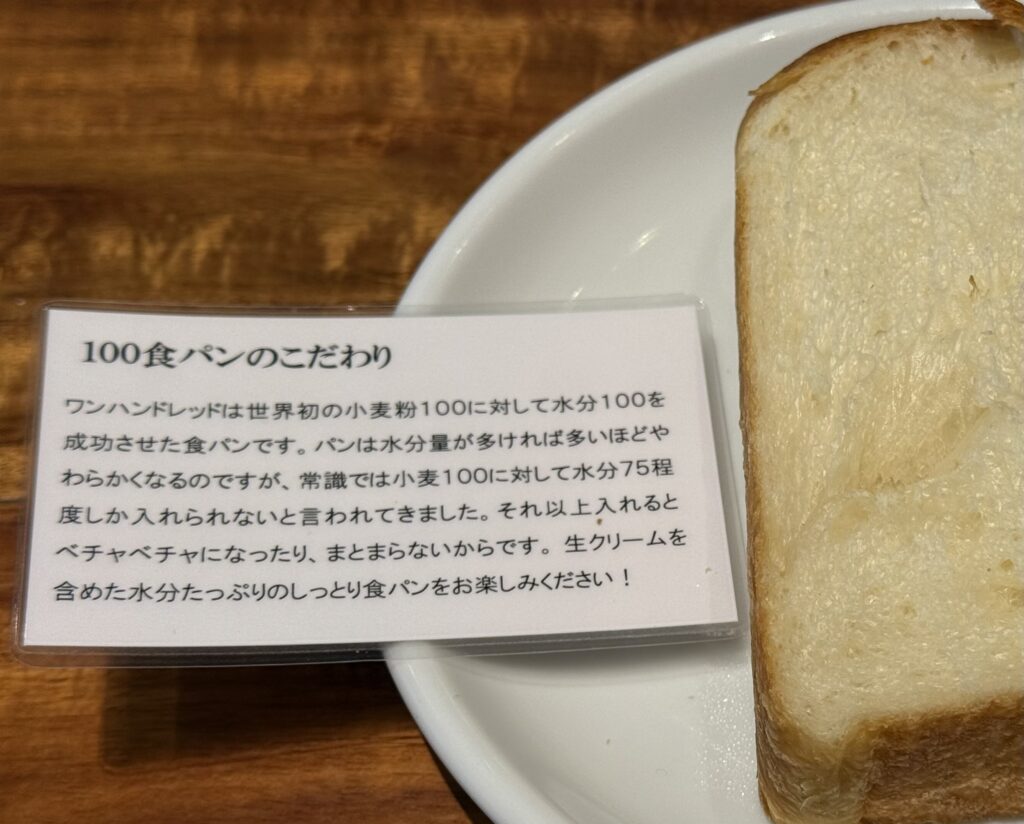 100食パンのこだわり
ワンハンドレッドは世界初の小麦粉100に対して水分100を
成功させた食パンです。パンは水分量が多ければ多いほどや
わらかくなるのですが、常識では小麦100に対して水分75程
度しか入れられないと言われてきました。それ以上入れると
ベチャベチャになったり、まとまらないからです。生クリームを
含めた水分たっぷりのしっとり食パンをお楽しみください！